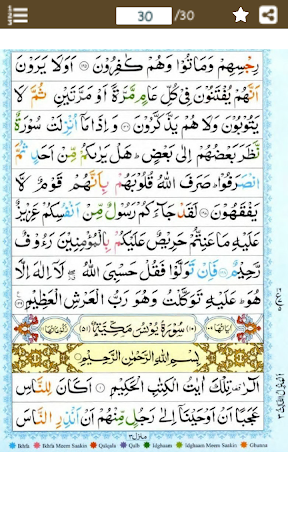 30 /30
رِجْسِهِمْ وَمَاتُوْا وَهُمْ كٰفِرُوْنَ ۝ اَوَلَا يَرَوْنَ
اَنَّهُمْ يُفْتَنُوْنَ فِيْ كُلِّ عَامٍ مَّرَّةً اَوْ مَرَّتَيْنِ ثُمَّ لَا
يَتُوْبُوْنَ وَلَا هُمْ يَذَّكَّرُوْنَ ۝ وَاِذَا مَآ اُنْزِلَتْ سُوْرَةٌ
نَّظَرَ بَعْضُهُمْ اِلٰى بَعْضٍ ؕ هَلْ يَرٰىكُمْ مِّنْ اَحَدٍ ثُمَّ
انْصَرَفُوْا ؕ صَرَفَ اللّٰهُ قُلُوْبَهُمْ بِاَنَّهُمْ قَوْمٌ لَّا
يَفْقَهُوْنَ ۝ لَقَدْ جَآءَكُمْ رَسُوْلٌ مِّنْ اَنْفُسِكُمْ عَزِيْزٌ
عَلَيْهِ مَا عَنِتُّمْ حَرِيْصٌ عَلَيْكُمْ بِالْمُؤْمِنِيْنَ رَءُوْفٌ
رَّحِيْمٌ ۝ فَاِنْ تَوَلَّوْا فَقُلْ حَسْبِيَ اللّٰهُ ۖ لَآ اِلٰهَ اِلَّا
هُوَ ؕ عَلَيْهِ تَوَكَّلْتُ وَهُوَ رَبُّ الْعَرْشِ الْعَظِيْمِ ۝
اٰيَاتُهَا ١٠٩ (١٠) سُوْرَةُ يُوْنُسَ مَكِّيَّةٌ (٥١) رُكُوْعَاتُهَا
بِسْمِ اللّٰهِ الرَّحْمٰنِ الرَّحِيْمِ
الٓرٰ ۚ تِلْكَ اٰيٰتُ الْكِتٰبِ الْحَكِيْمِ ۝ اَكَانَ لِلنَّاسِ
عَجَبًا اَنْ اَوْحَيْنَآ اِلٰى رَجُلٍ مِّنْهُمْ اَنْ اَنْذِرِ النَّاسَ
منزل ٣
Ikhfa Ikhfa Meem Saakin Qalqala Qalb Idghaam Idghaam Meem Saakin Ghunna